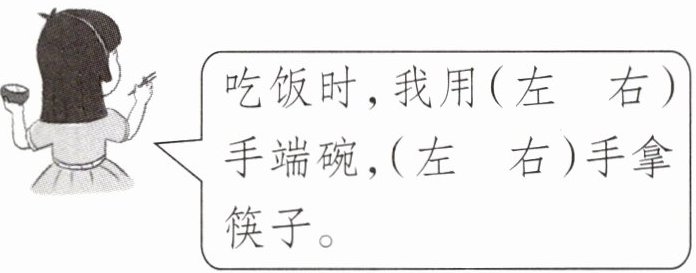 吃饭时,我用(左　右)
手端碗,(左　右)手拿
筷子。